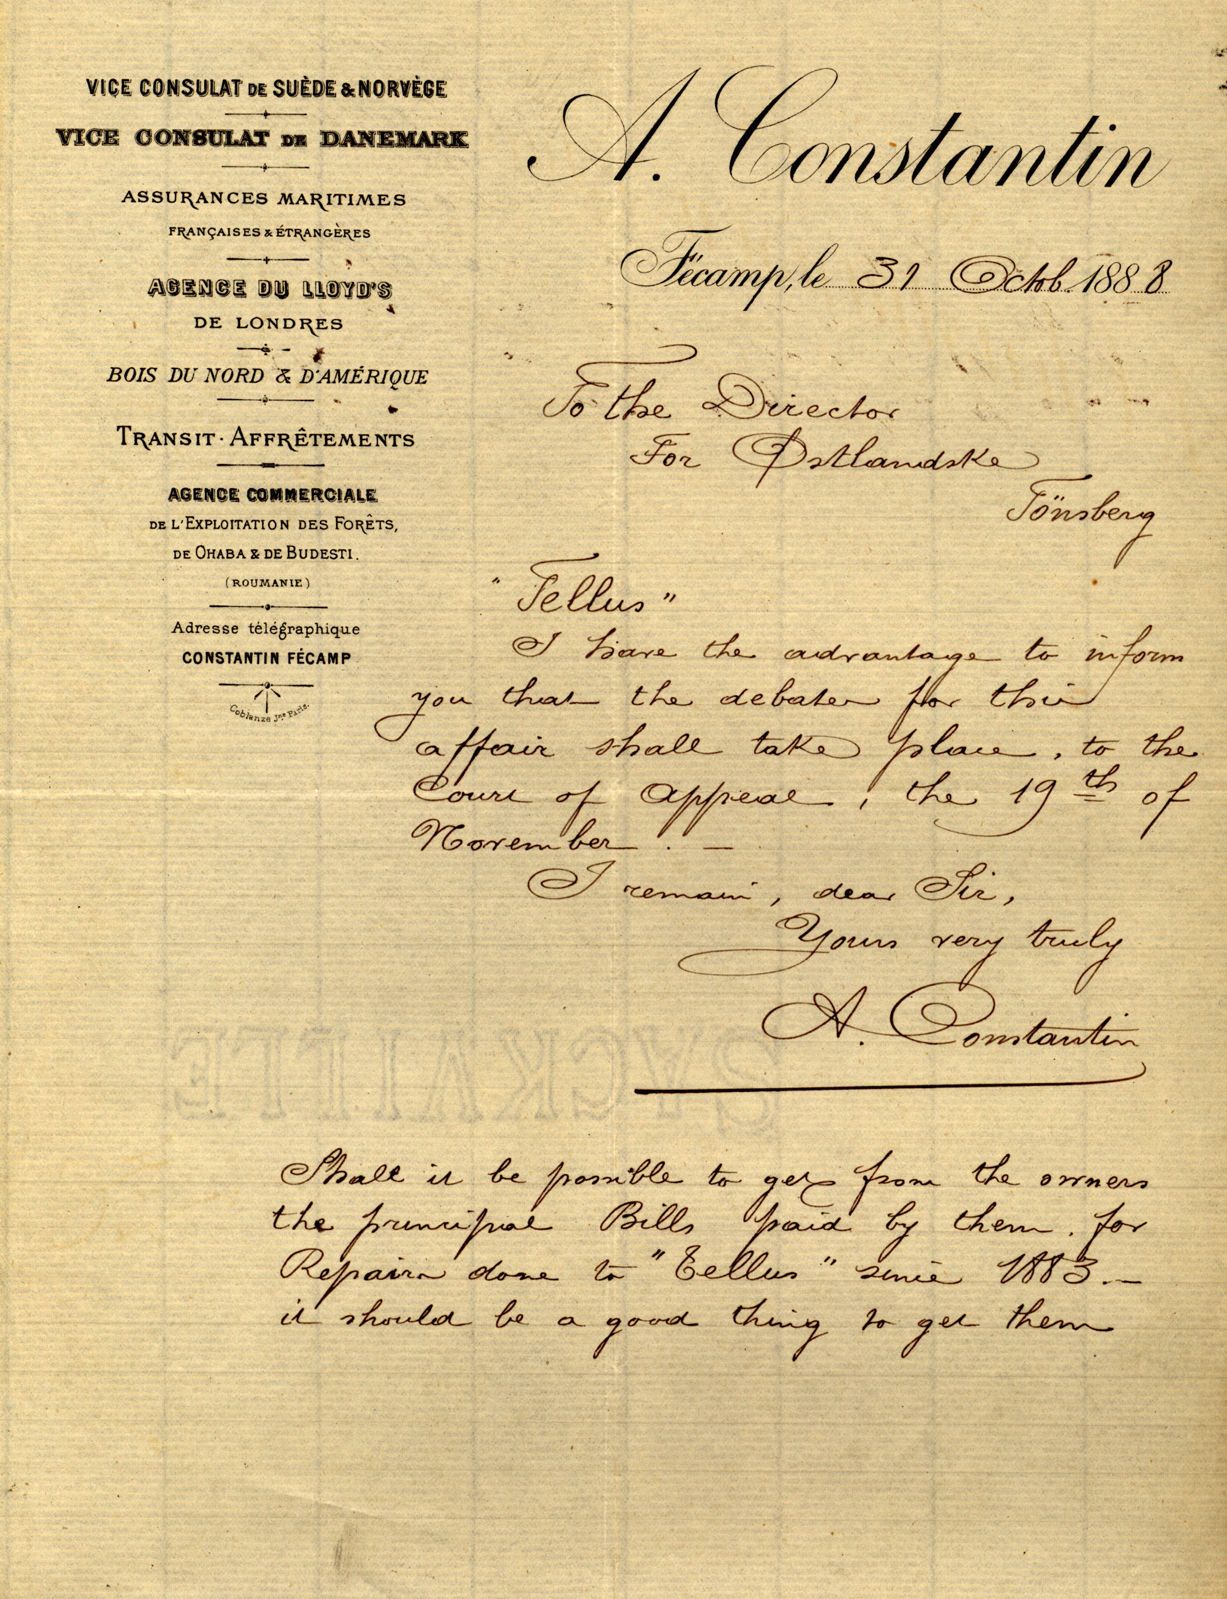 VICE CONSULAT DE SUÈDE & NORVÈGE
VICE CONSULAT DE DANEMARK
ASSURANCES MARITIMES
FRANÇAISES & ÉTRANGÈRES
AGENCE DU LLOYD'S
DE LONDRES
BOIS DU NORD & D'AMÉRIQUE
TRANSIT · AFFRÊTEMENTS
AGENCE COMMERCIALE
DE L'EXPLOITATION DES FORÊTS,
DE OHABA & DE BUDESTI.
(ROUMANIE)
Adresse télégraphique
CONSTANTIN FÉCAMP
Coblenze Jne Paris.
A. Constantin
Fécamp, le 31 Octob. 1888
To the Director
For Østlandske
Tönsberg
"Tellus"
I have the advantage to inform
you that the debates for this
affair shall take place, to the
Court of Appeal, the 19th of
November. —
I remain, dear Sir,
Yours very truly
A. Constantin
Shall it be possible to get from the owners
the principal Bills paid by them. for
Repairs done to "Tellus" since 1883. —
it should be a good thing to get them
SACKMITE